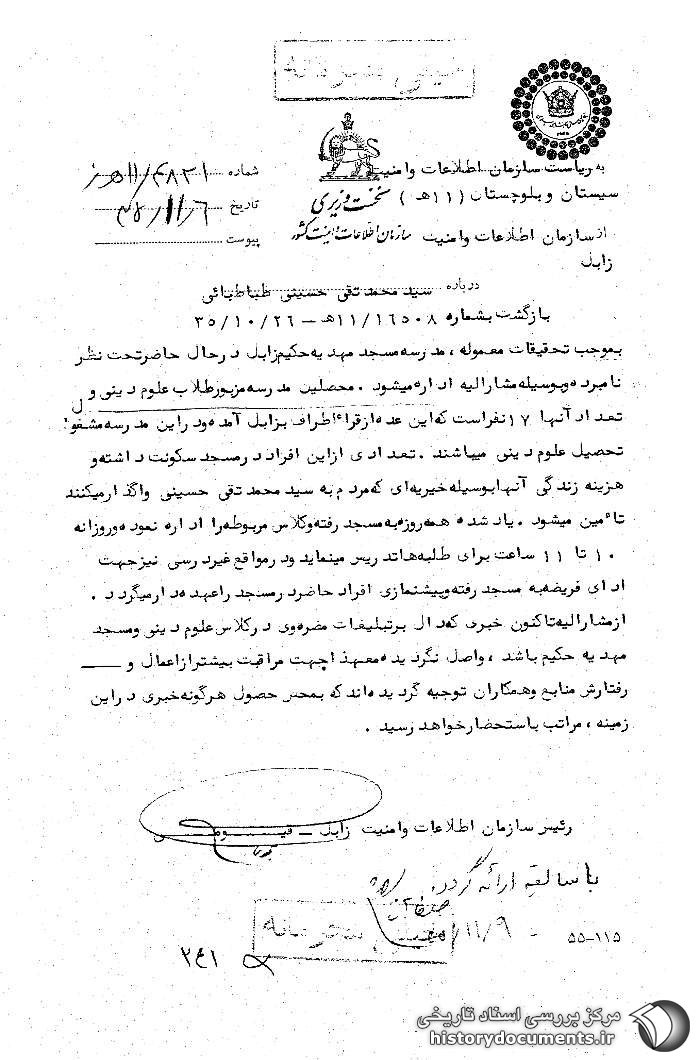 خیلی محرمانه
به ریاست سازمان اطلاعات وامنیت
سیستان وبلوچستان (۱۱هـ)
نخست وزیری
سازمان اطلاعات وامنیت کشور
از سازمان اطلاعات وامنیت
زابل
شماره
تاریخ
پیوست
درباره سید محمد تقی حسینی طباطبائی
بازگشت بشماره ۱۱/۱۶۵۰۸هـ – ۳۵/۱۰/۲۶
بموجب تحقیقات معموله ، مدرسه مسجد مهدیه حکیم زابل درحال حاضر تحت نظر
نامبرده وبوسیله مشارالیه اداره میشود . محصلین مدرسه مزبور طلاب علوم دینی و
تعداد آنها ۱۷ نفراست که این عده ازقراء اطراف بزابل آمده ودراین مدرسه مشغول
تحصیل علوم دینی میباشند . تعدادی ازاین افراد درمسجد سکونت داشته و
هزینه زندگی آنها بوسیله خیریه ای که مردم به سید محمد تقی حسینی واگذارمیکنند
تامین میشود . یاد شده همه روزه به مسجد رفته وکلاس مربوطه را اداره نموده وروزانه
۱۰ تا ۱۱ ساعت برای طلبه ها تدریس مینماید ودرمواقع غیردرسی نیزجهت
ادای فریضه به مسجد رفته وپیشنمازی افراد حاضردرمسجد راعهده دارمیگردد .
ازمشارالیه تاکنون خبری که دال برتبلیغات مضره وی درکلاس علوم دینی ومسجد
مهدیه حکیم باشد ، واصل نگردیده معهذا جهت مراقبت بیشترازاعمال و ــــ
رفتارش منابع وهمکاران توجیه گردیده اند که بمحض حصول هرگونه خبری دراین
زمینه ، مراتب باستحضارخواهد رسید .
رئیس سازمان اطلاعات وامنیت زابل ــ قیـــومی
با سابقه ارائه گردد.
۱۱/۹
۵۵-۱۱۵
خیلی محرمانه
۳۴۱
مرکز بررسی اسناد تاریخی
historydocuments.ir